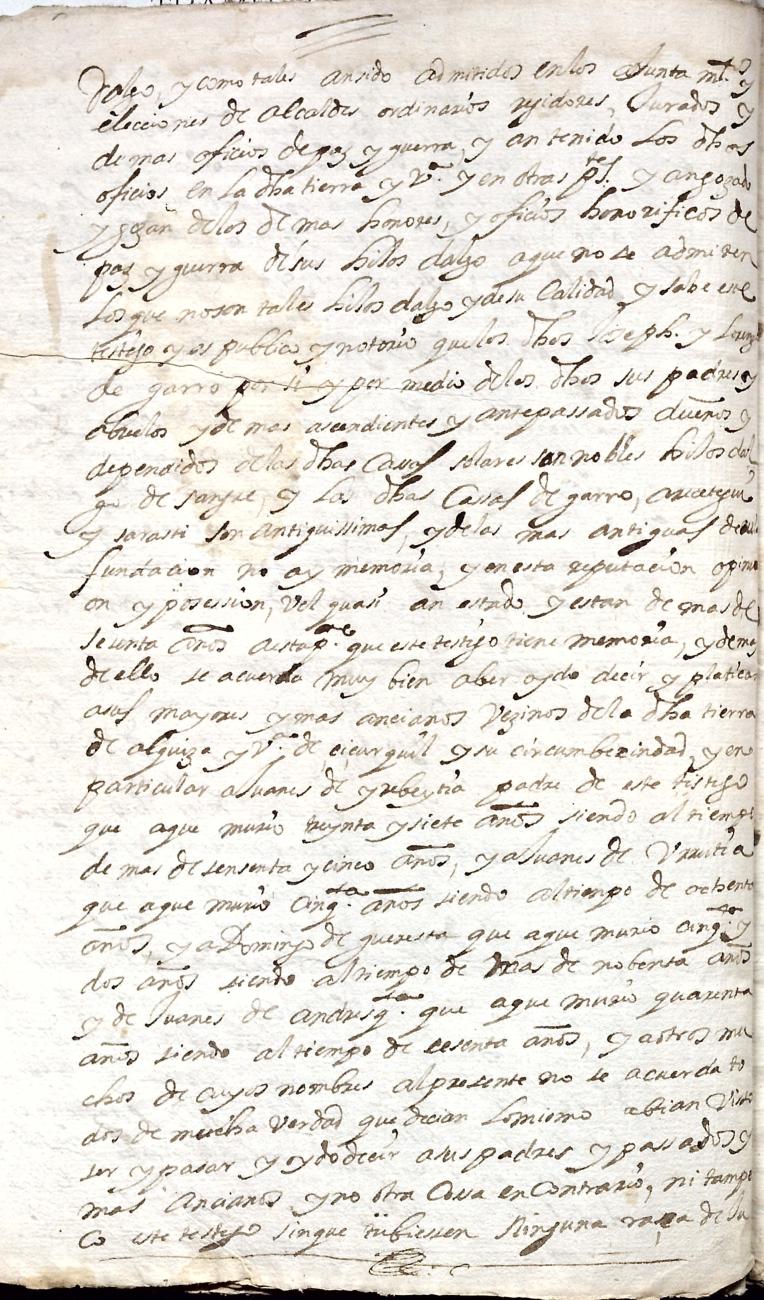 dalgo, y como tales an sido admitidos en los aJunta mtos y
elecciones de alcaldes ordinarios rejidores, Jurados y
demas oficios de paz y guerra, y an tenido los dhos
oficios en la dha tierra y Va. y en otras ptes. y an gozado
y gozan de los de mas honores, y oficios honorificos de
paz y guerra de sus hijos dalgo aque no se admiten
los que no son tales hijos dalgo y de su Calidad y sabe este
testigo y es publico y notorio que los dhos Joseph. y Lorenzo
de garro por si y por medio de los dhos sus padres y
abuelos y de mas ascendientes y antepassados dueños y
dependidos de las dhas Casas solares son nobles hijos dal
go de sangre, y las dhas Casas de garro,
y sarasti son antiquissimas, y de las mas antiguas de cuia
fundacion no ay memoria, y en esta reputacion opini
on y posession, Vel quasi an estado y estan de mas de
sesenta años a esta pte. que este testigo tiene memoria, y demas
de ello se acuerda muy bien aber oydo decir y platicar
a sus mayores y mas ancianos Vezinos de la dha tierra
de alquiza y Va. de çiçurquil y su circumbezindad, y en
particular a Juanes de yrbeytia padre de este testigo
que aque murio treynta y siete años siendo al tiempo
de mas de sensenta y cinco años, y a Juanes de Vrrutia
que aque murio cinqta. años siendo al tiempo de ochenta
años, y a Domingo de queresta que aque murio cinqta. y
dos años siendo al tiempo de mas de nobenta años
y de Juanes de andres que aque murio quarenta
años siendo al tiempo de sesenta años, y a otros mu
chos de cuyos nombres al presente no se acuerda to
dos de mucha Verdad que decian lo mismo abian Visto
ser y pasar y oydo decir a sus padres y passados y
mas Ancianos y no otra Cossa en Contrario, ni tampo
co este testigo sin que tubiessen Ninguna raza de Ju